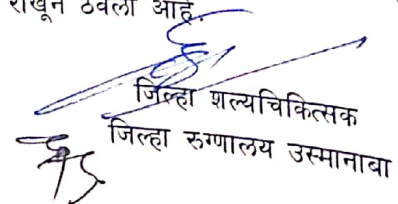 राखून ठेवला आहे.
जिल्हा शल्यचिकित्सक
जिल्हा रुग्णालय उस्मानाबा